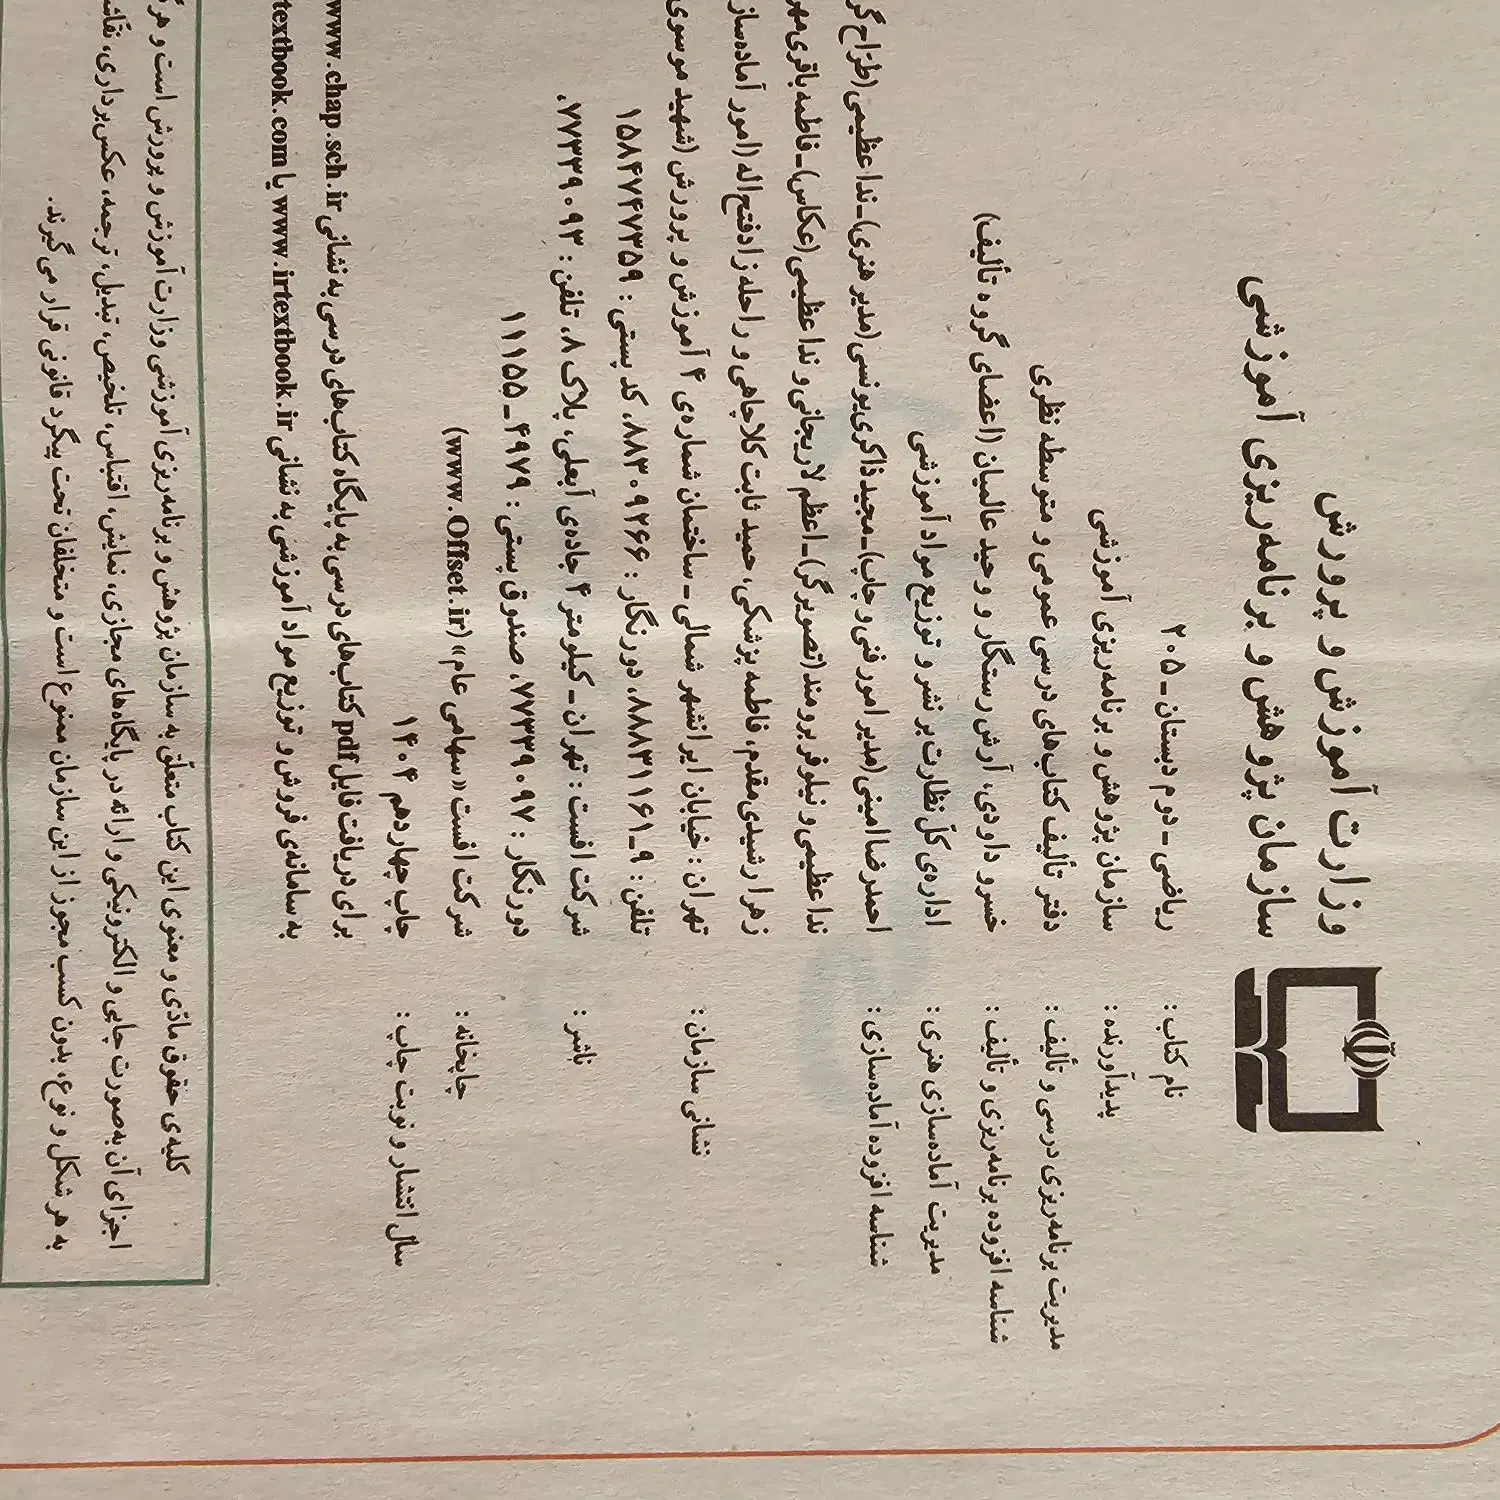 وزارت آموزش و پرورش
سازمان پژوهش و برنامه‌ریزی آموزشی
نام کتاب: ریاضی ـ دوم دبستان ـ ۲۰۵
پدیدآورنده: سازمان پژوهش و برنامه‌ریزی آموزشی
مدیریت برنامه‌ریزی درسی و تألیف: دفتر تألیف کتاب‌های درسی عمومی و متوسطه نظری
شناسه افزوده برنامه‌ریزی و تألیف: خسرو داودی، آرش رستگار و وحید عالمیان (اعضای گروه تألیف)
مدیریت آماده‌سازی هنری: اداره‌ی کلّ نظارت بر نشر و توزیع مواد آموزشی
شناسه افزوده آماده‌سازی: احمدرضا امینی (مدیر امور فنی و چاپ) ـ مجید ذاکری یونسی (مدیر هنری) ـ ندا عظیمی (طرّاح
ندا عظیمی و نیلوفر برومند (تصویرگر) ـ اعظم لاریجانی و ندا عظیمی (عکاس) ـ فاطمه باقری
زهرا رشیدی مقدم، فاطمه پزشکی، حمید ثابت کلاچاهی و راحله زادفتح‌اله (امور
نشانی سازمان: تهران: خیابان ایرانشهر شمالی ـ ساختمان شماره‌ی ۴ آموزش و پرورش (شهید موسوی
تلفن: ۹ـ۸۸۸۳۱۱۶۱، دورنگار: ۸۸۳۰۹۲۶۶، کد پستی: ۱۵۸۴۷۴۷۳۵۹
ناشر: شرکت افست: تهران ـ کیلومتر ۴ جاده‌ی آبعلی، پلاک ۸، تلفن: ۷۷۳۳۹۰۹۳،
دورنگار: ۷۷۳۳۹۰۹۷، صندوق پستی: ۴۹۷۹ ـ ۱۱۱۵۵
چاپخانه: شرکت افست «سهامی عام» (www.Offset.ir)
سال انتشار و نوبت چاپ: چاپ چهاردهم ۱۴۰۴
برای دریافت فایل pdf کتاب‌های درسی به پایگاه کتاب‌های درسی به نشانی www.chap.sch.ir
به سامانه‌ی فروش و توزیع مواد آموزشی به نشانی www.irtextbook.ir یا textbook.com
کلیه‌ی حقوق مادّی و معنوی این کتاب متعلّق به سازمان پژوهش و برنامه‌ریزی آموزشی وزارت آموزش و پرورش است و
اجزای آن به‌صورت چاپی و الکترونیکی و ارائه در پایگاه‌های مجازی، نمایش، اقتباس، تلخیص، تبدیل، ترجمه، عکس‌برداری،
به هر شکل و نوع، بدون کسب مجوز از این سازمان ممنوع است و متخلفان تحت پیگرد قانونی قرار می‌گیرند.